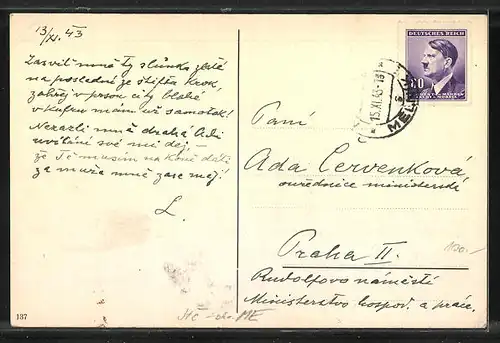 13/XI. 43
Zasviť mně ty slunko zlaté
na poslední ze štěstí krok,
zahřej v prsou city blahé
v kufru mám už samotok!
Nezazli mně drahá Adi
uvítání své mi dej, –
že Tě musím na koně dáti
za muže mně zase měj!
L.
137
DEUTSCHES REICH
60
15.XI.43-18
MĚL
Paní
Ada Červenková,
úřednice ministerstva
Praha II.
Rudolfovo náměstí
Ministerstvo hospod. a práce.
100.-